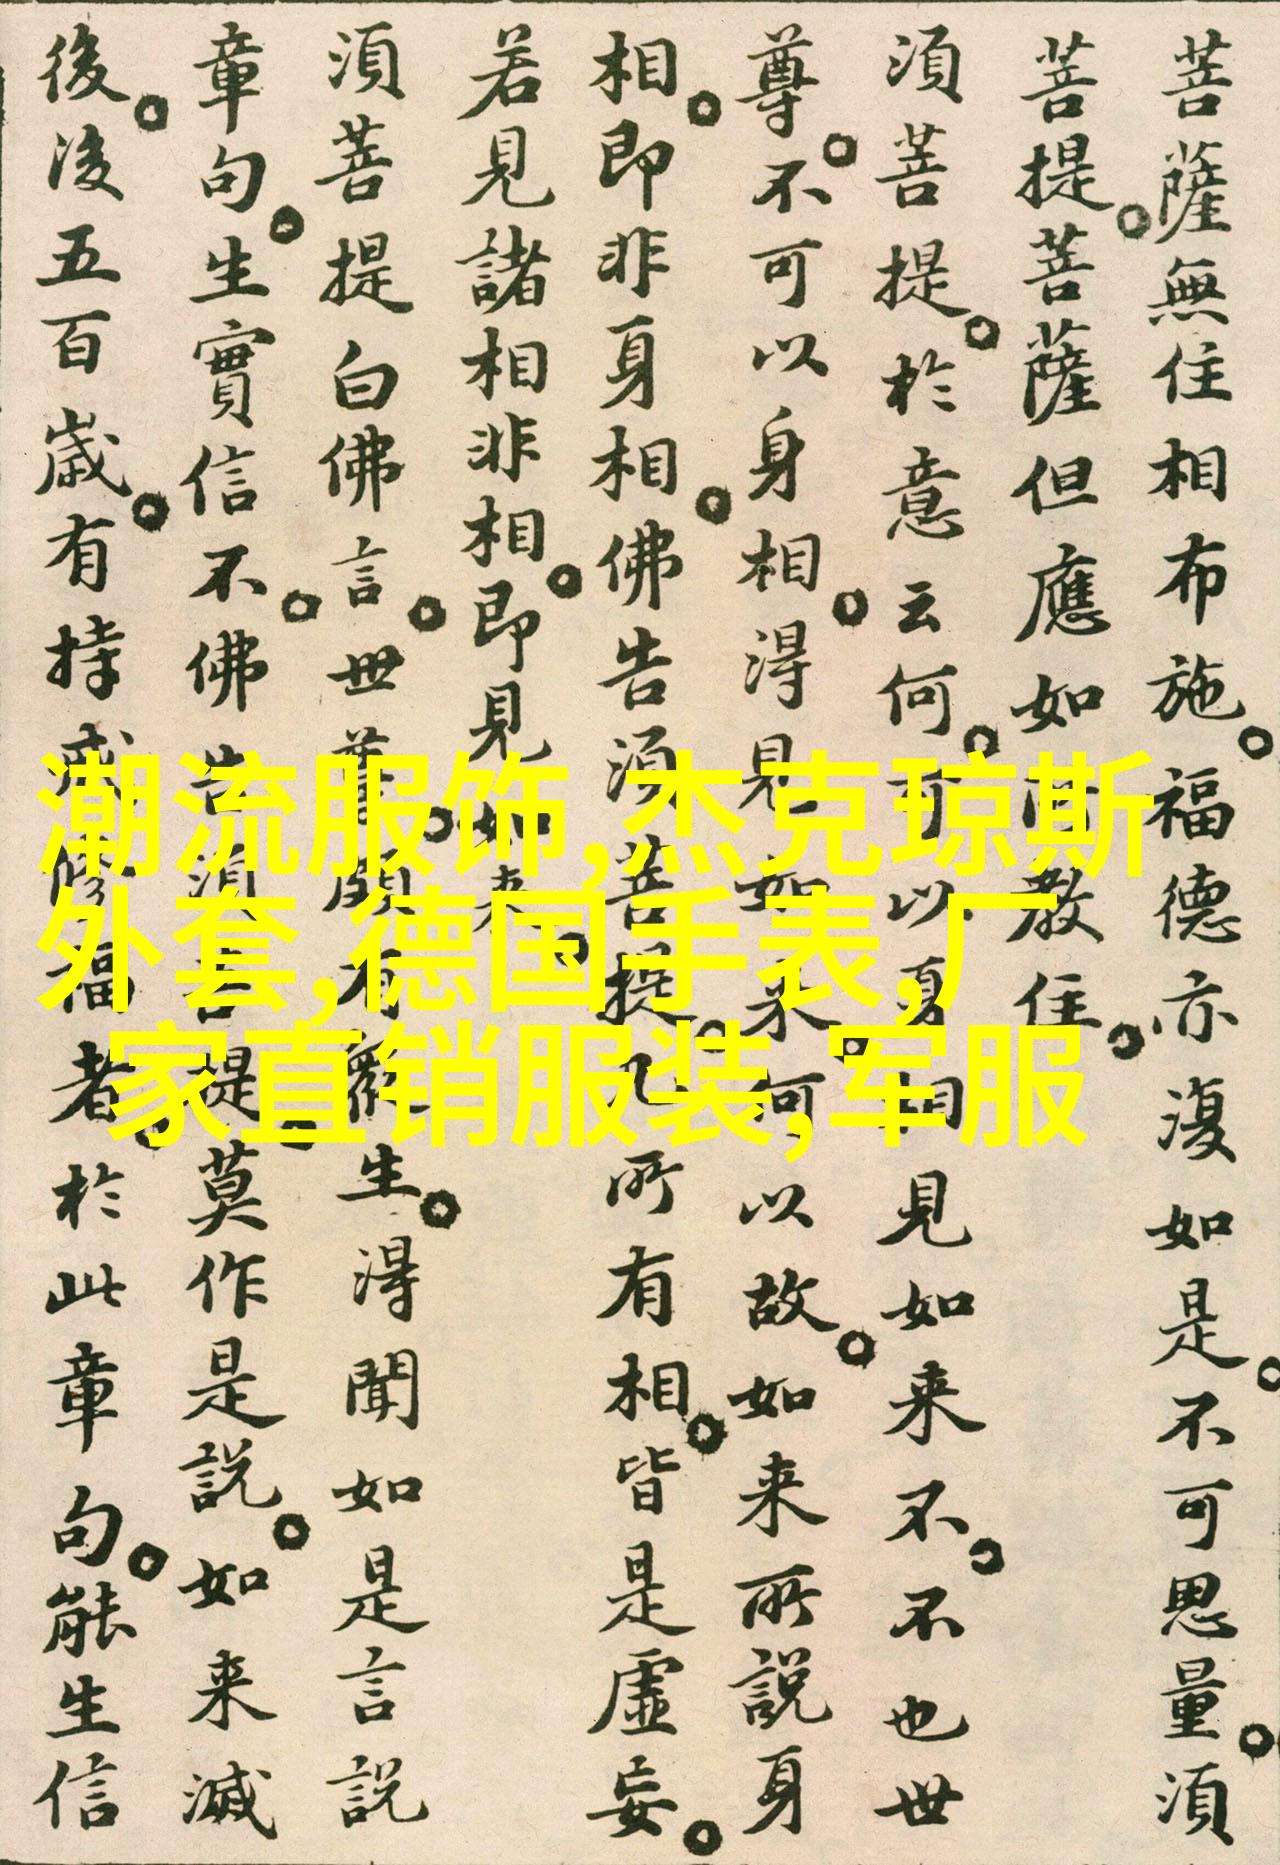 菩薩無住相布施。福德亦復如是。不可思量。須
菩提。菩薩但應如所教住。
須菩提。於意云何。可以身相見如来不。不也世
尊。不可以身相。得見如来。何以故。如来所說身
相。即非身相。佛告須菩提。凡所有相。皆是虛妄。
若見諸相非相。即見如来。
須菩提白佛言。世尊。頗有衆生。得聞如是言說
章句。生實信不。佛告須菩提。莫作是說。如来滅
後。後五百歲。有持戒修福者。於此章句。能生信
潮流服饰,杰克琼斯
外套,德国手表,厂
家直销服装,军服